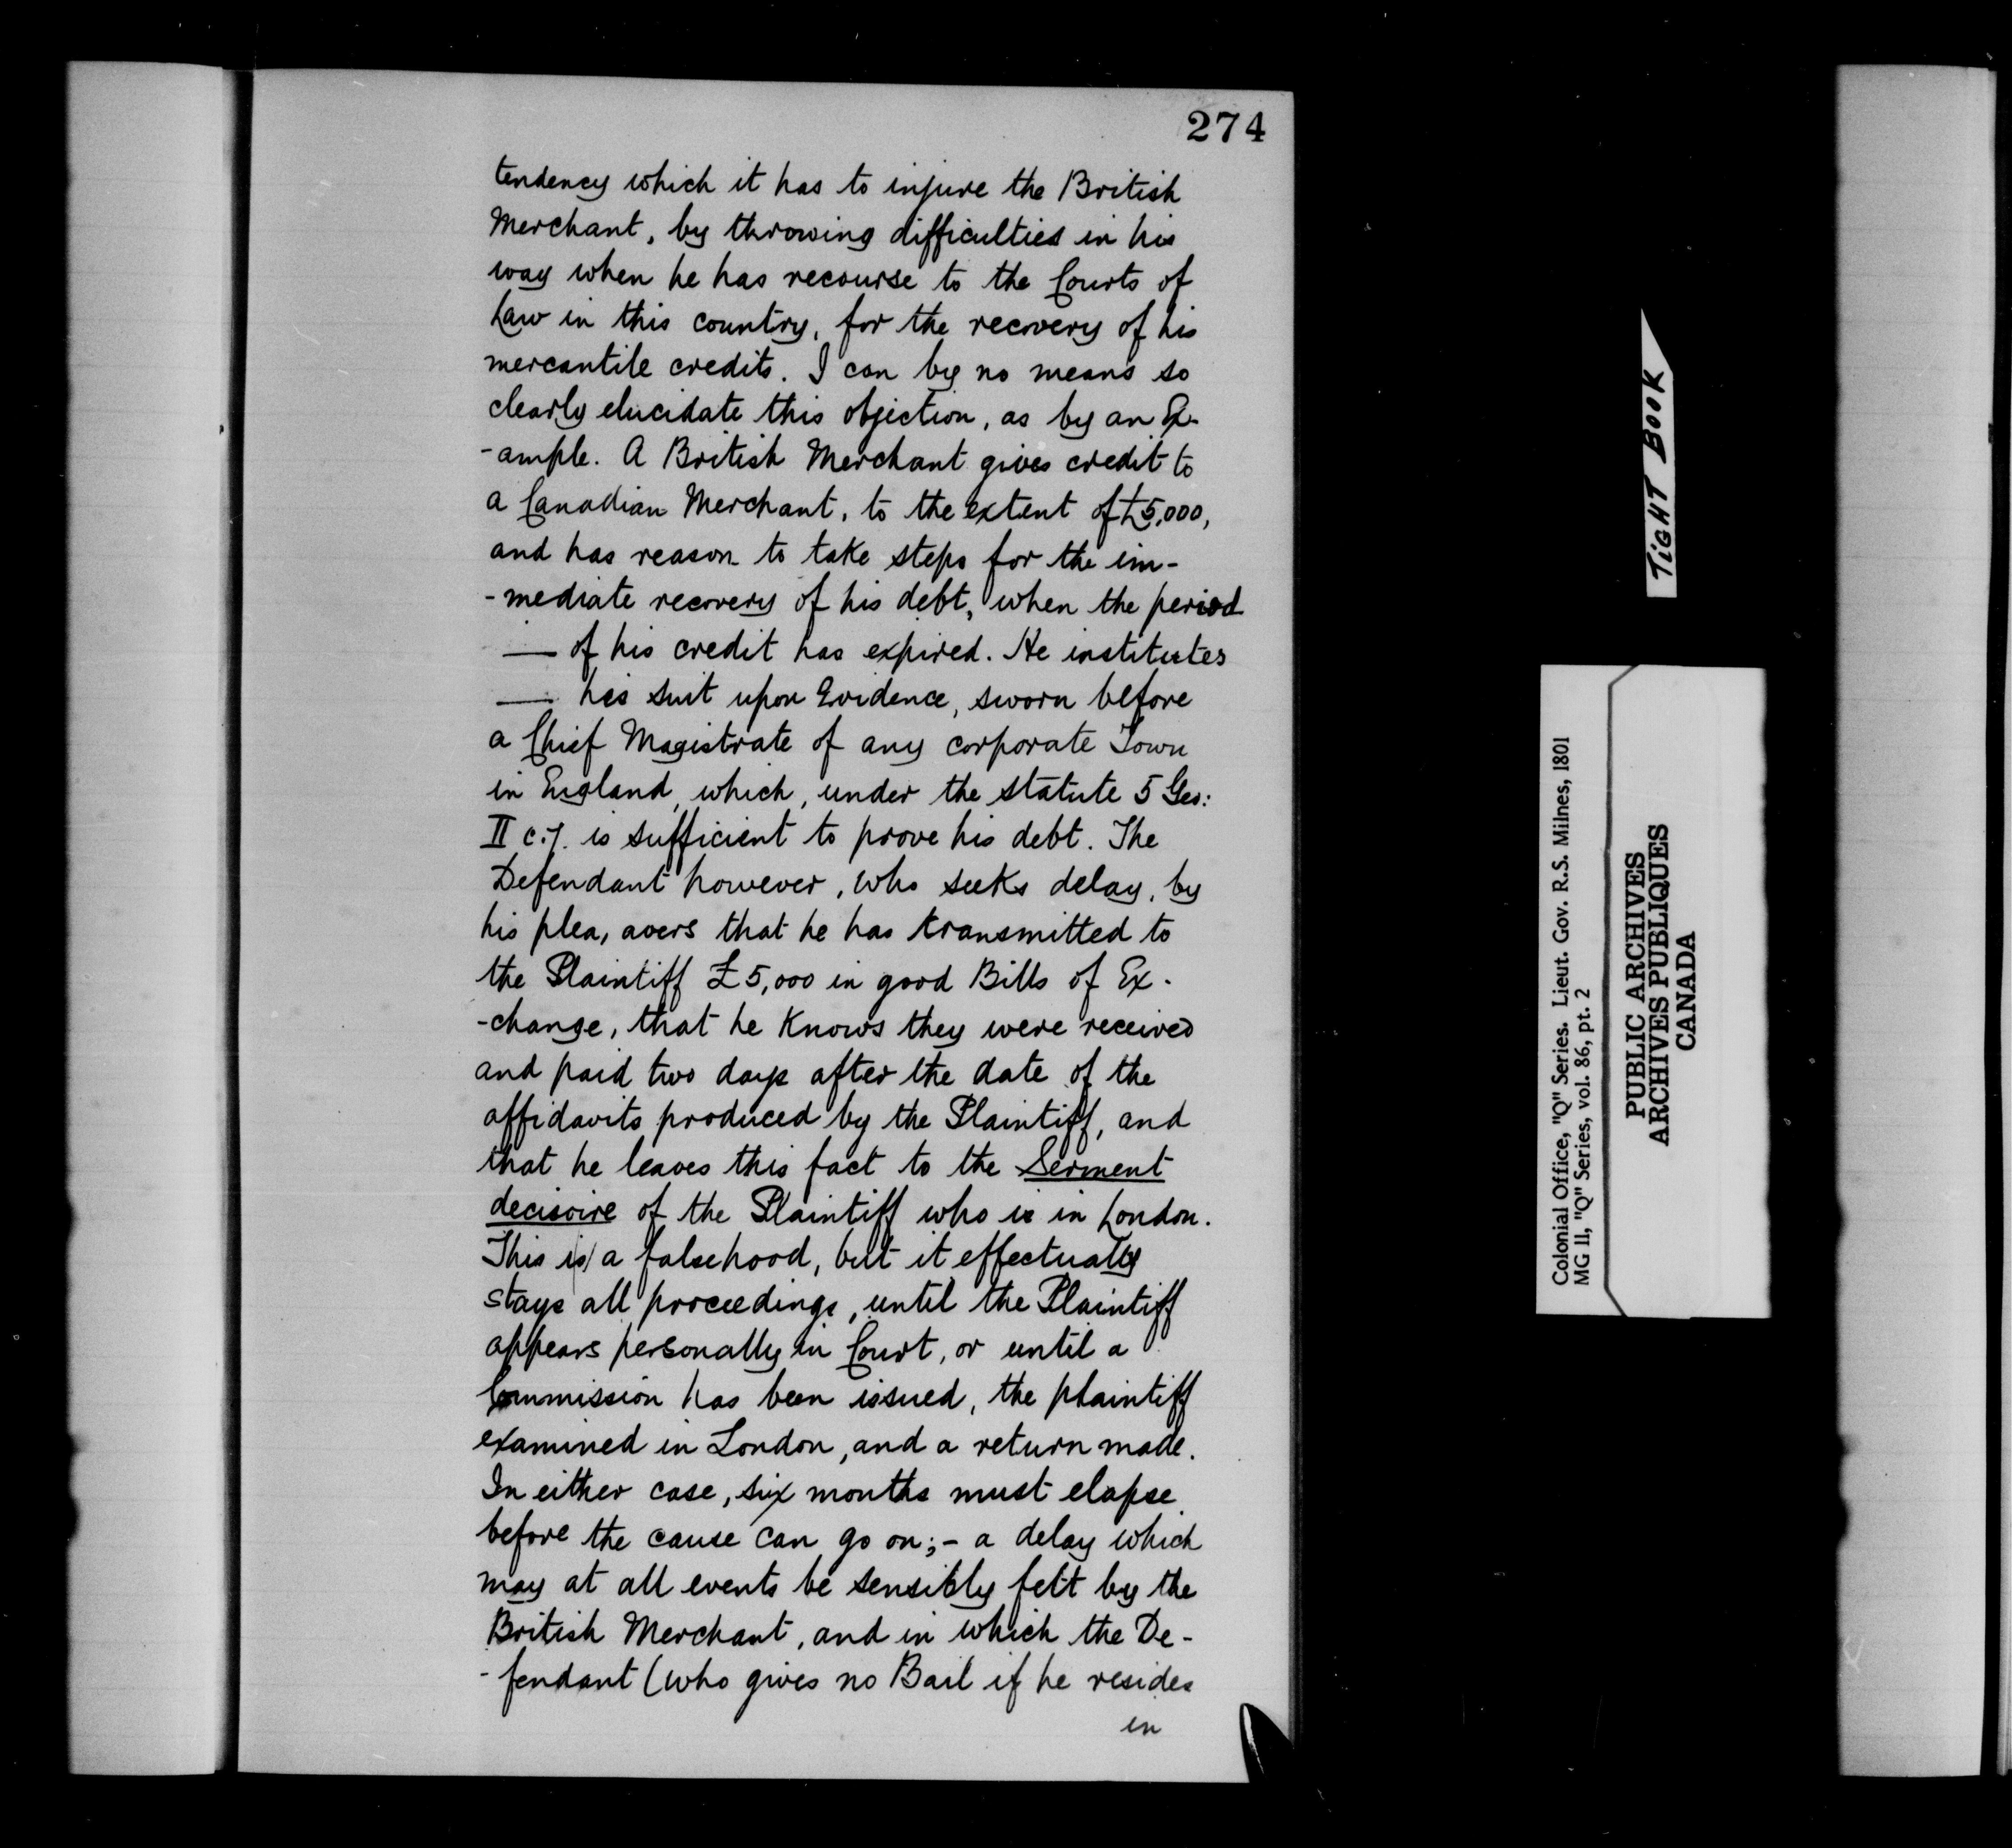 274
tendency which it has to injure the British
Merchant, by throwing difficulties in his
way when he has recourse to the Courts of
Law in this country, for the recovery of his
mercantile credits. I can by no means so
clearly elucidate this objection, as by an Ex-
-ample. A British Merchant gives credit to
a Canadian Merchant, to the extent of £5,000,
and has reason to take steps for the im-
-mediate recovery of his debt, when the period
— of his credit has expired. He institutes
— his suit upon Evidence, sworn before
a Chief Magistrate of any corporate Town
in England, which, under the statute 5 Geo:
II c.7. is sufficient to prove his debt. The
Defendant however, who seeks delay, by
his plea, avers that he has transmitted to
the Plaintiff £5,000 in good Bills of Ex-
-change, that he knows they were received
and paid two days after the date of the
affidavits produced by the Plaintiff, and
that he leaves this fact to the Serment
decisoire of the Plaintiff who is in London.
This is a falsehood, but it effectually
stays all proceedings, until the Plaintiff
appears personally in Court, or until a
Commission has been issued, the plaintiff
examined in London, and a return made.
In either case, six months must elapse
before the cause can go on;- a delay which
may at all events be sensibly felt by the
British Merchant, and in which the De-
-fendant (who gives no Bail if he resides
in
TiGHT BOOK
Colonial Office, "Q" Series. Lieut. Gov. R.S. Milnes, 1801
MG 11, "Q" Series, vol. 86, pt. 2
PUBLIC ARCHIVES
ARCHIVES PUBLIQUES
CANADA